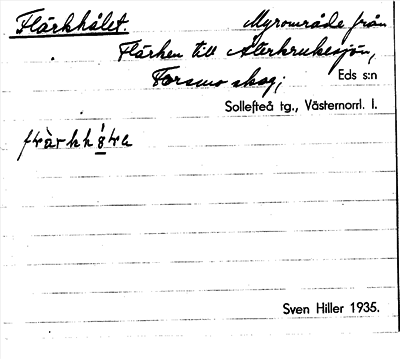 Flärkhålet. Myrområde från
Flärken till Alerkrukesjön,
Forsmo skog; Eds s:n
Sollefteå tg., Västernorrl. l.
Sven Hiller 1935.